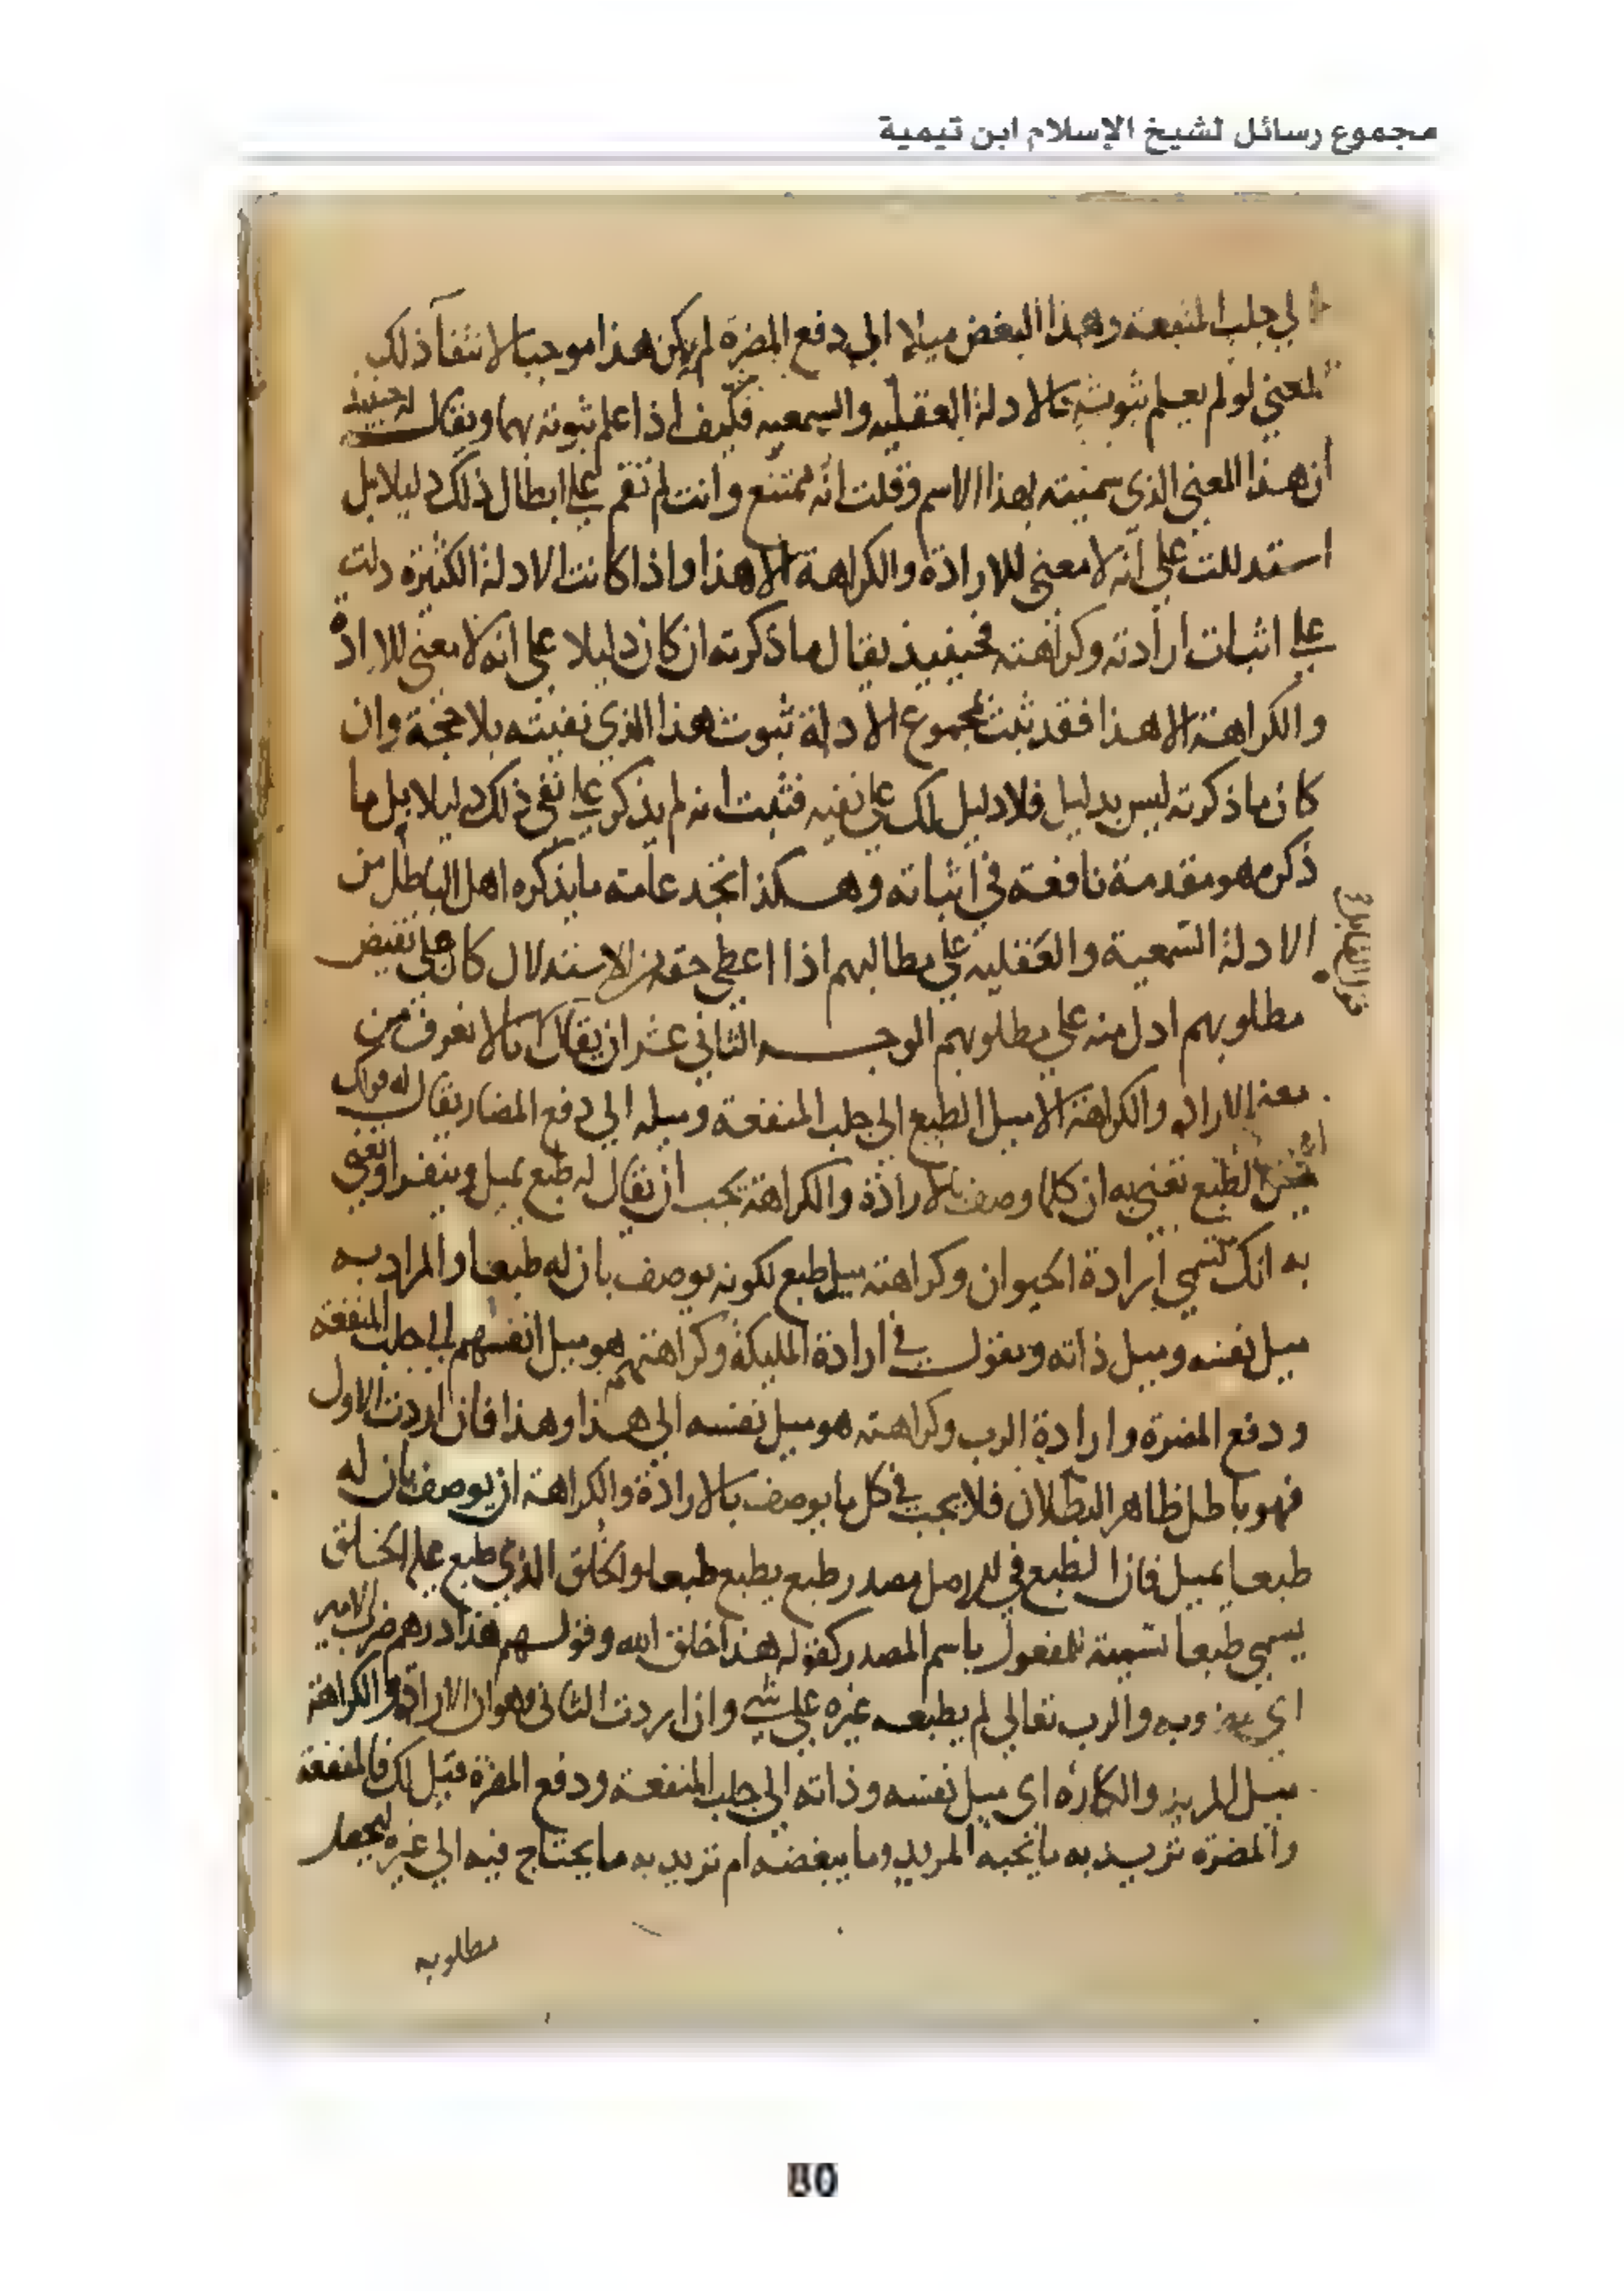 مجموع رسائل لشيخ الإسلام ابن تيمية
الي جلب المنفعة وهذا البغض ميلا الي دفع المضرة لم يكن هذا موجبا لانتفآ ذلك
المعني لو لم يعلم ثبوته بالادلة العقليه والسمعيه فكيف اذا علم ثبوته بهما ويقال له حينيذ
ان هذا المعني الذي سميته بهذا الاسم وقلت انه ممتنع وانت لم تقم علي ابطال ذلك دليلا بل
استدللت علي انه لا معني للارادة والكراهة الا هذا واذا كانت الادلة الكثيرة دلت
علي اثبات ارادته وكراهته فحينيذ يقال ما ذكرته ان كان دليلا علي انه لا معني للارادة
والكراهة الا هذا فقد ثبت بمجموع الادلة ثبوت هذا الذي نفيته بلا حجة وان
كان ما ذكرته ليس بدليل فلا دليل لك علي نفيه فثبت انه لم يذكر علي نفي ذلك دليلا بل ما
ذكره هو مقدمة نافعة في اثباته وهكذا تجد عامته ما يذكره اهل الباطل من
الادلة السمعية والعقليه علي مطالبهم اذا اعطي حقه من الاستدلال كان علي نقيض
مطلوبهم ادل منه علي مطلوبهم الوجه الثاني عشر ان يقال انا لا نعرف من
معني الارادة والكراهة الا ميل الطبع الي جلب المنفعة وميله الي دفع المضار يقال له قولك
الطبع تعني به ان كلما وصف بالارادة والكراهة يجب ان يقال له طبع يميل وينفر او تعني
به انك تسمي ارادة الحيوان وكراهته ميل طبع لكونه يوصف بان له طبعا والمراد به
ميل نفسه وميل ذاته ويقول في ارادة المليكة وكراهتهم هو ميل انفسهم الي جلب المنفعة
ودفع المضرة وارادة الرب وكراهته هو ميل نفسه الي هذا وهذا فان اردت الاول
فهو باطل ظاهر البطلان فلا يجب في كل ما يوصف بالارادة والكراهة ان يوصف بان له
طبعا يميل فان الطبع في الاصل مصدر طبع يطبع طبعا والخلق الذي طبع عليه الخلق
يسمي طبعا تسمية للمفعول باسم المصدر كقوله هذا خلق الله وقولهم هذا درهم ضرب الامير
اي مضروبه والرب تعالي لم يطبعه غيره علي شي وان اردت الثاني وهو ان الارادة والكراهة
ميل المريد والكاره اي ميل نفسه وذاته الي جلب المنفعة ودفع المضرة قيل لك فالمنفعة
والمضرة تريد به ما يحبه المريد وما يبغضه ام تريد به ما يحتاج فيه الي غيره ليحصل
مطلوبه
80